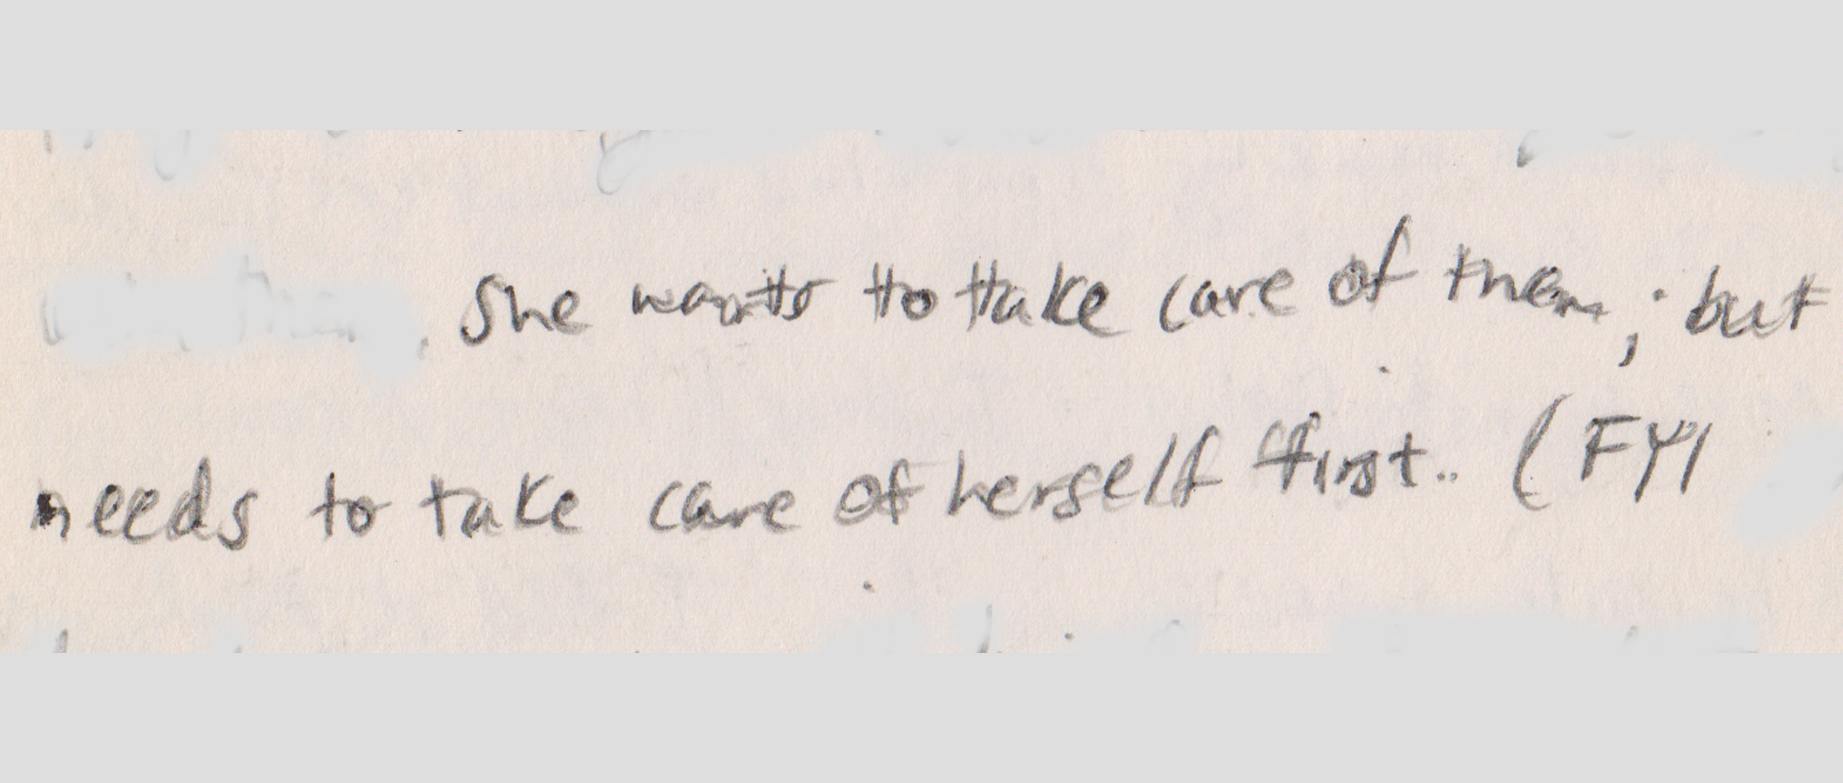 She wants to take care of them; but
needs to take care of herself first.. (FYI